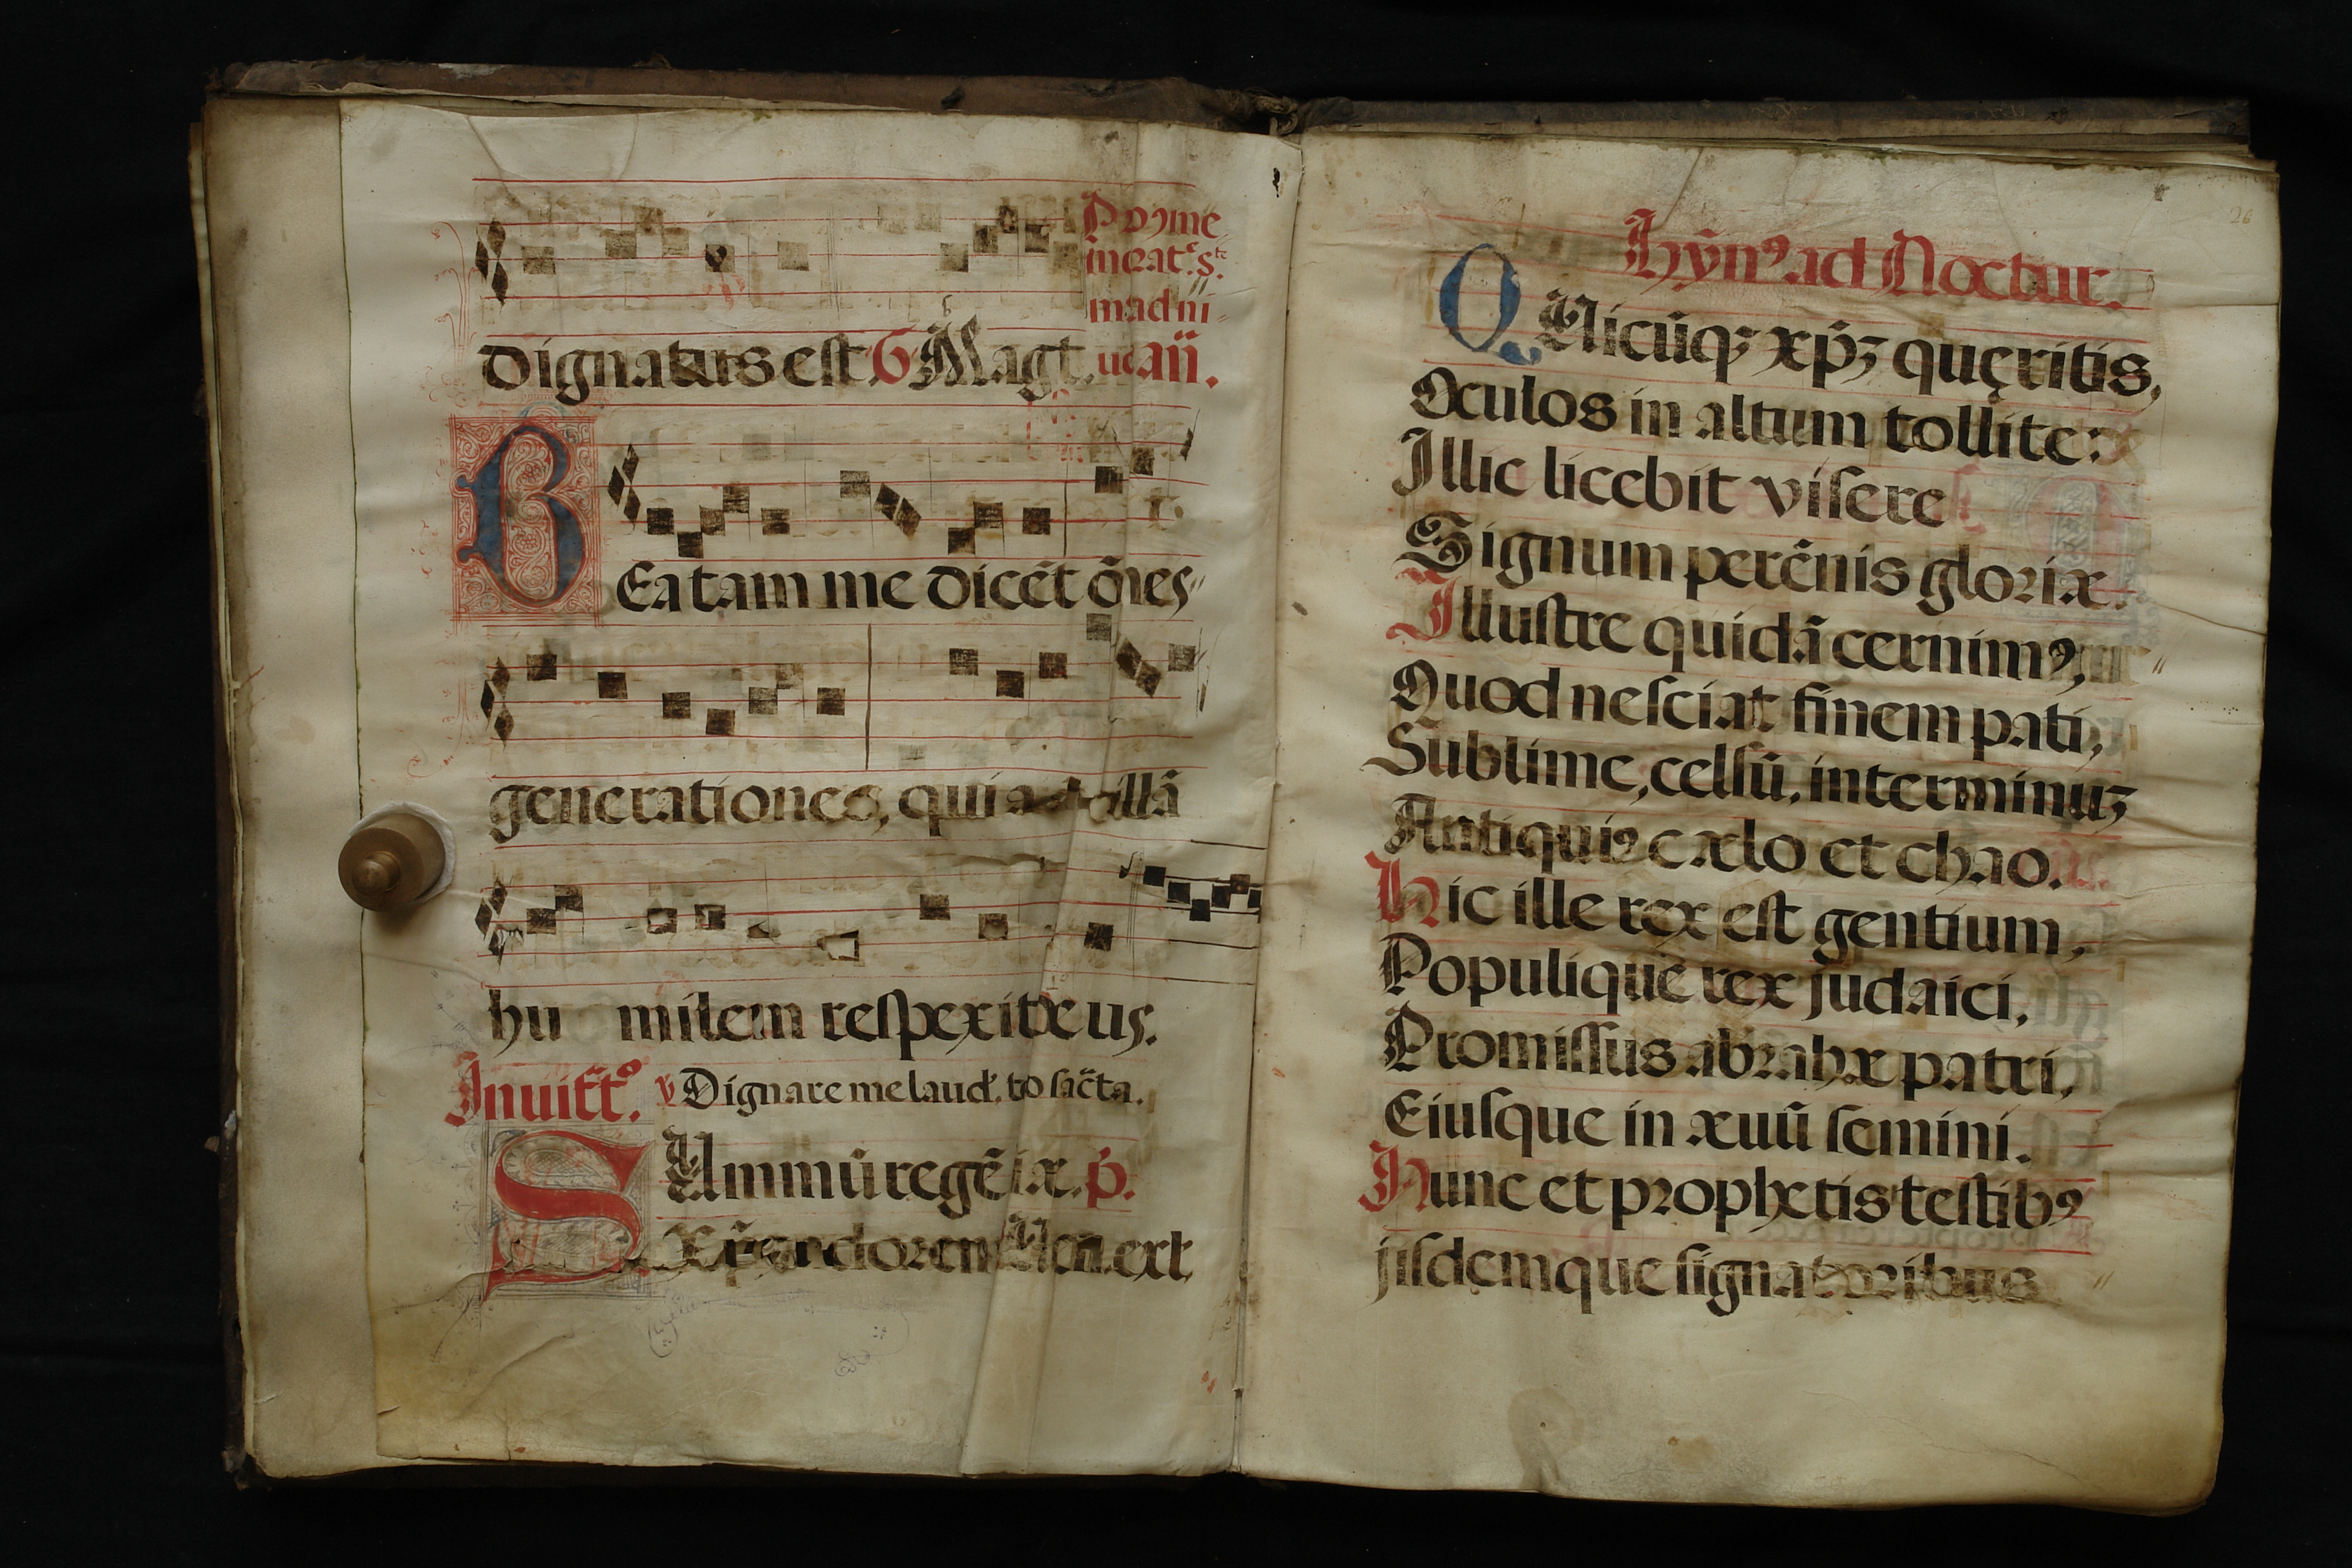 dignatus est. G Magt.
ad ni
añ.
BEatam me dicẽt õnes
generationes, quia ancillã
hu milem respexit deus.
Inuitt⁹. v Dignare me laud. to sac̃ta.
SUmmũ regẽ ix. p̃.
26
Hỹn⁹. ad Noctur.
QUicũq; xp̃ꝫ quęritis,
Oculos in altum tollite:
Illic licebit visere
Signum perẽnis gloriæ.
Illustre quidã cernim⁹,
Quod nesciat finem pati,
Sublime, celsũ, interminuꝫ
Antiqui⁹ cælo et chao.
Hic ille rex est gentium,
Populique rex judaici,
Promissus abrahæ patri,
Eiusque in æuũ semini.
Hunc et prophetis testib⁹
jisdemque signatoribus